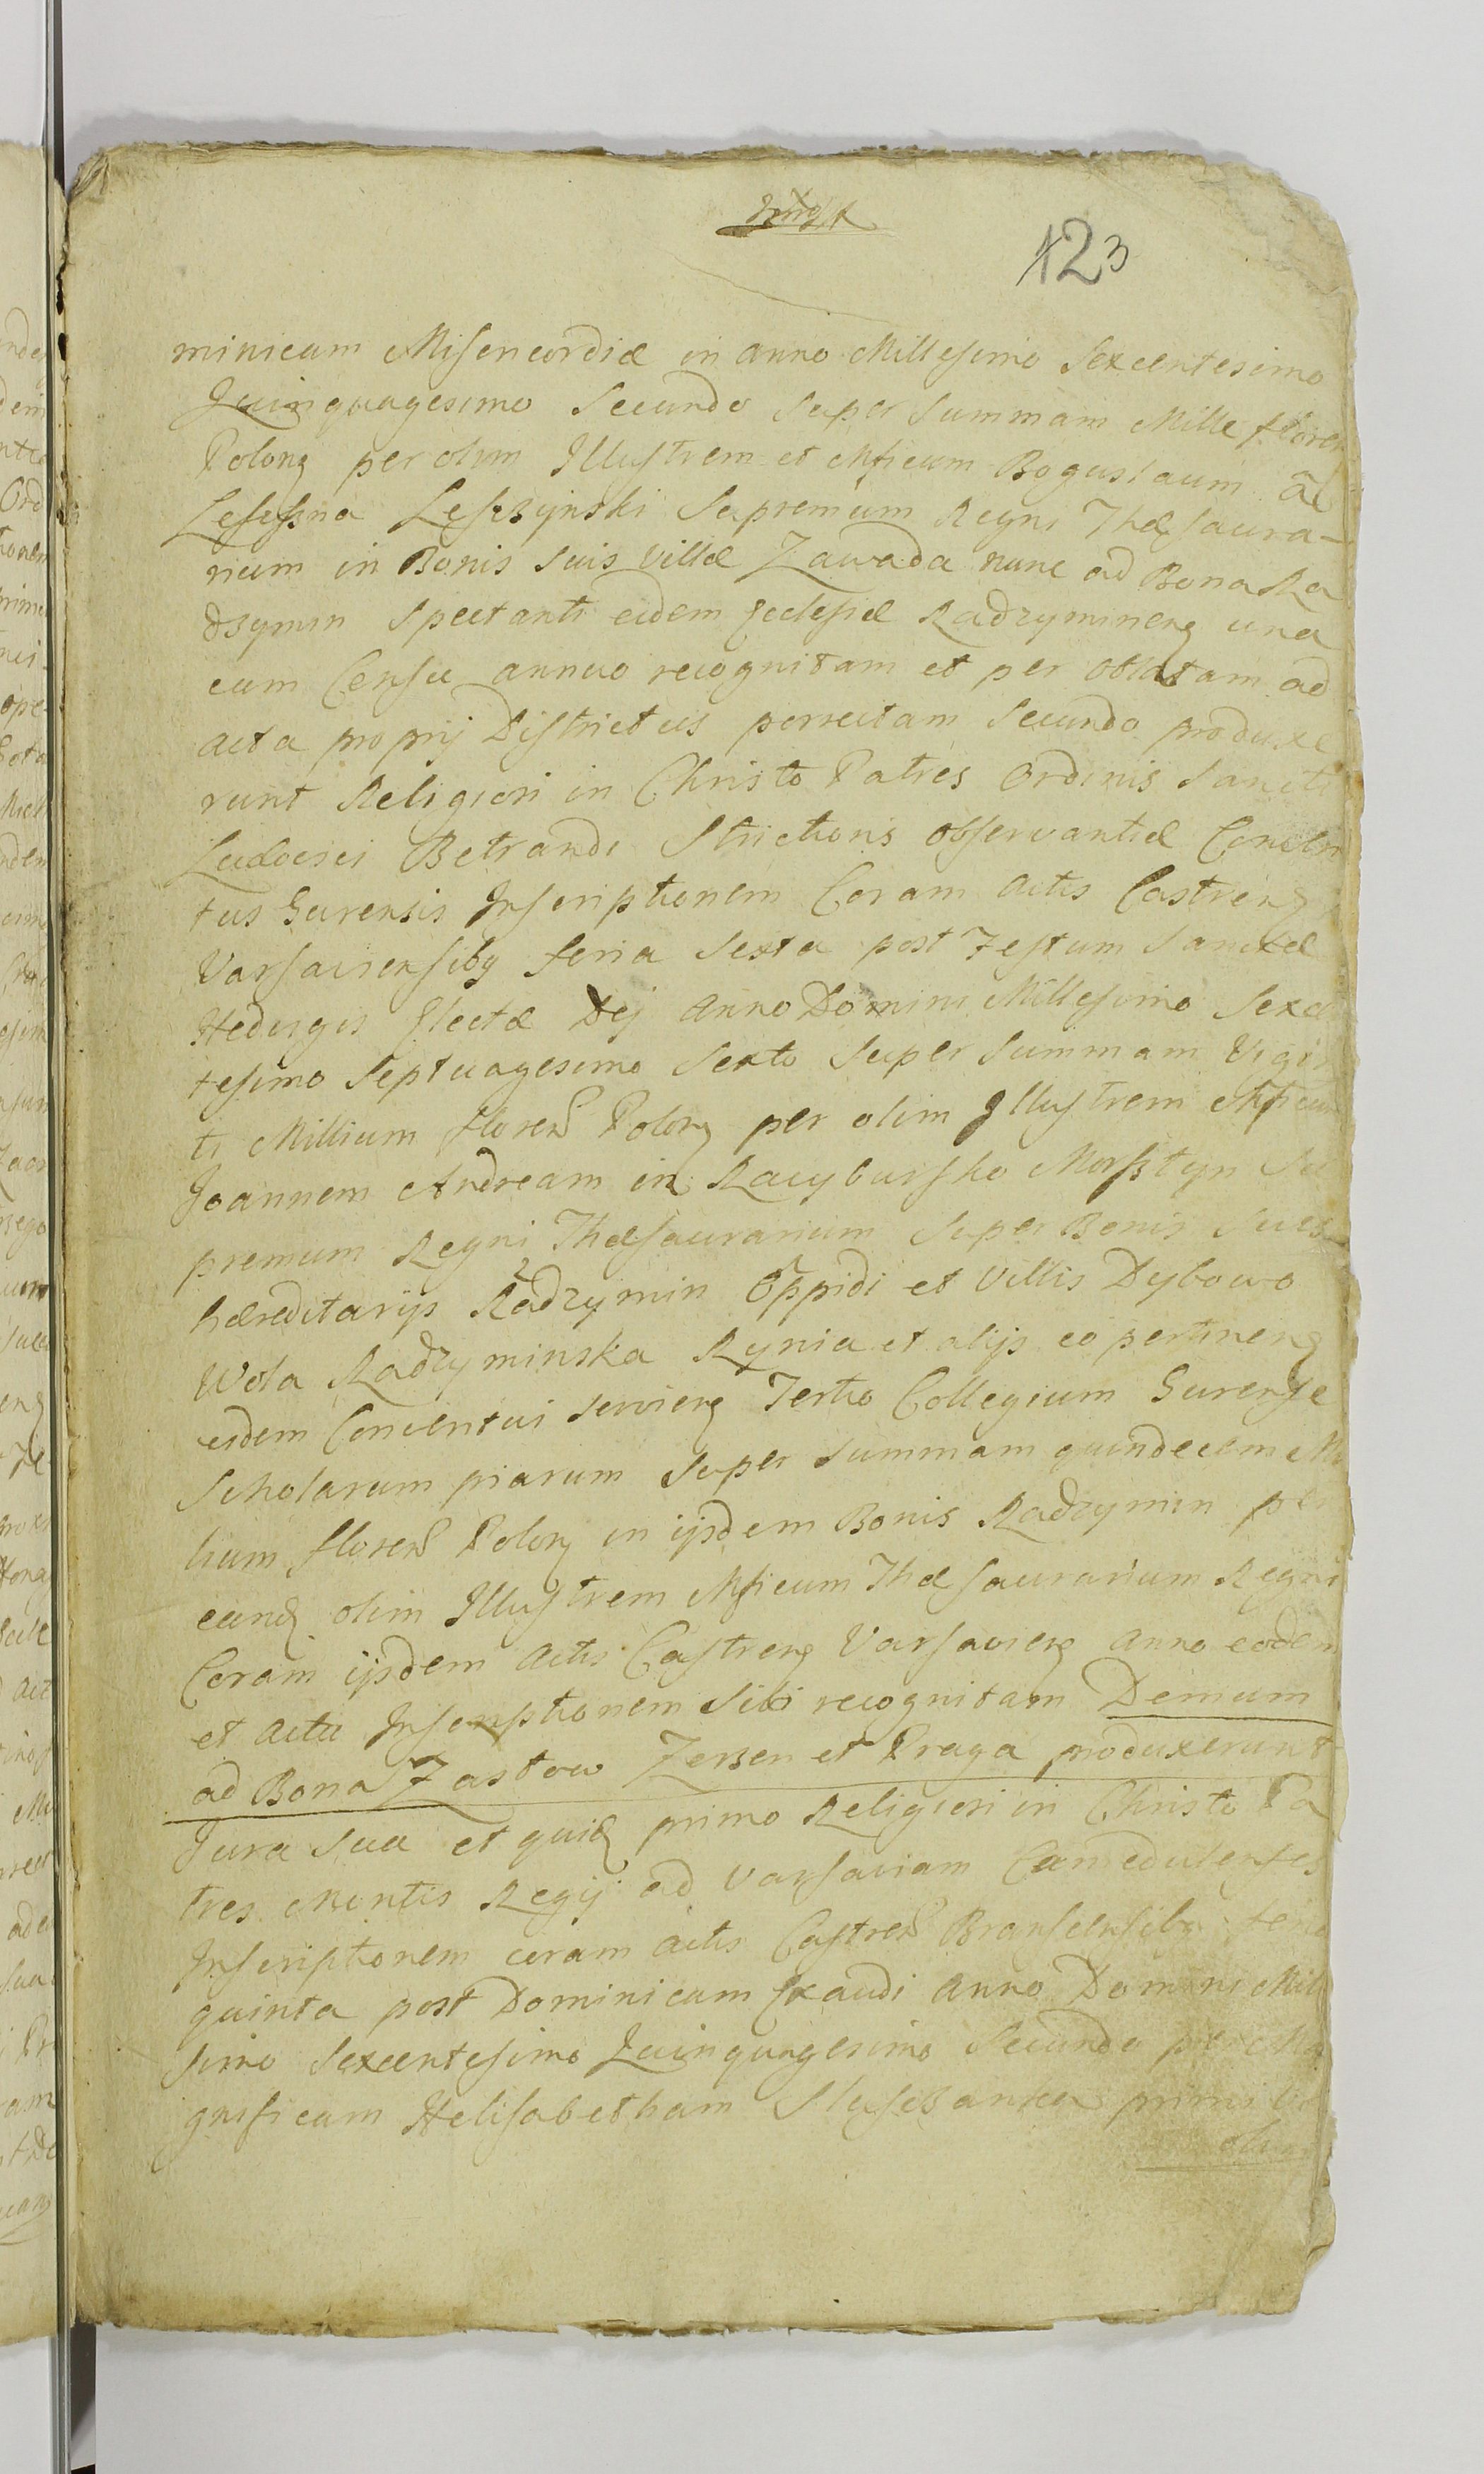 123
minicam Misericordiæ in anno Millesimo Sexcentesimo
Quinquagesimo Secundo super summam Mille floren
Polonȝ per olim Illustrem et Mficum Boguslaum à
Leszno Leszzynski Supremum Regni Thæsaura-
rium in Bonis suis villæ Zawada nunc ad Bona Ra
dzymin spectanti eidem Ecclesiæ Radzyminenȝ una
cum Censu annuo recognitam et per oblatam ad
acta proprij Districtus porrectam Secundo produxe
runt Religiosi in Christo Patres Ordinis Sancti
Ludovici Betrandi Strictioris observantiæ Conven
tus Gurensis Inscriptionem Coram actis Castrenȝ
Varsaviensibȝ feria sexta post Festum Sanctæ
Hedvigis Electæ Dej Anno Domini Millesimo Sexcen
tesimo Septuagesimo Sexto super summam Vigin
ti Millium floren Polonȝ per olim Illustrem Mficum
Joannem Andream in Racybursko Morsztyn Su
premum Regni Thæsaurarium super Bonis suis
hæreditarijs Radzymin Oppidi et villis Dybowo
Wola Radzyminska Rynia et alijs eo pertinenȝ
eidem Conventui servienȝ Tertio Collegium Gurense
Scholarum piarum super summam quindecem Mil
lium floren Polonȝ in ijsdem Bonis Radzymin per
eundȝ olim Illustrem Mficum Thæsaurarium Regni
Coram ijsdem actis Castrenȝ Varsavienȝ anno eodem
et actu Inscriptionem sibi recognitam Demum
ad Bona Zastow Zerzen et Praga produxerunt
Jura sua et quidȝ primo Religiosi in Christo Pa
tres Montis Regij ad Varsaviam Camedulenses
Inscriptionem coram actis Castren Branscensibȝ feria
quinta post Dominicam Exaudi Anno Domini Mille
simo Sexcentesimo Quinquagesimo Secundo per Ma
gnificam Helisabetham Sluszczanka primi
olim